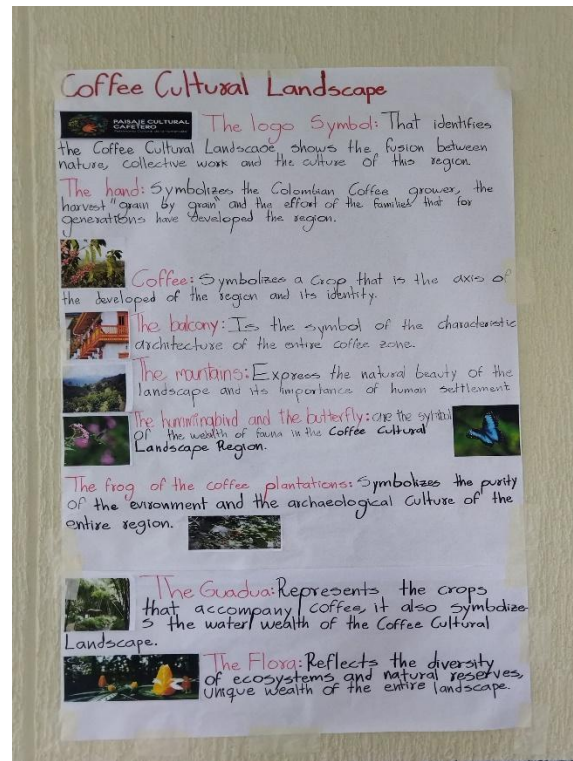 Coffee Cultural Landscape
PAISAJE CULTURAL
CAFETERO
The logo Symbol: That identifies
the Coffee Cultural Landscape, shows the fusion between
nature, collective work and the culture of this region.
The hand: Symbolizes the Colombian Coffee grower, the
harvest "grain by grain" and the effort of the families that for
generations have developed the region.
Coffee: Symbolizes a crop that is the axis of
the developed of the region and its identity.
The balcony: Is the symbol of the characteristic
architecture of the entire coffee zone.
The mountains: Express the natural beauty of the
landscape and its importance of human settlement
The hummingbird and the butterfly: are the symbol
of the wealth of fauna in the Coffee Cultural
Landscape Region.
The frog of the coffee plantations: Symbolizes the purity
of the evironment and the archaeological culture of the
entire region.
The Guadua: Represents the crops
that accompany coffee, it also symbolize-
s the water wealth of the Coffee Cultural
Landscape.
The Flora: Reflects the diversity
of ecosystems and natural reserves,
unique wealth of the entire landscape.